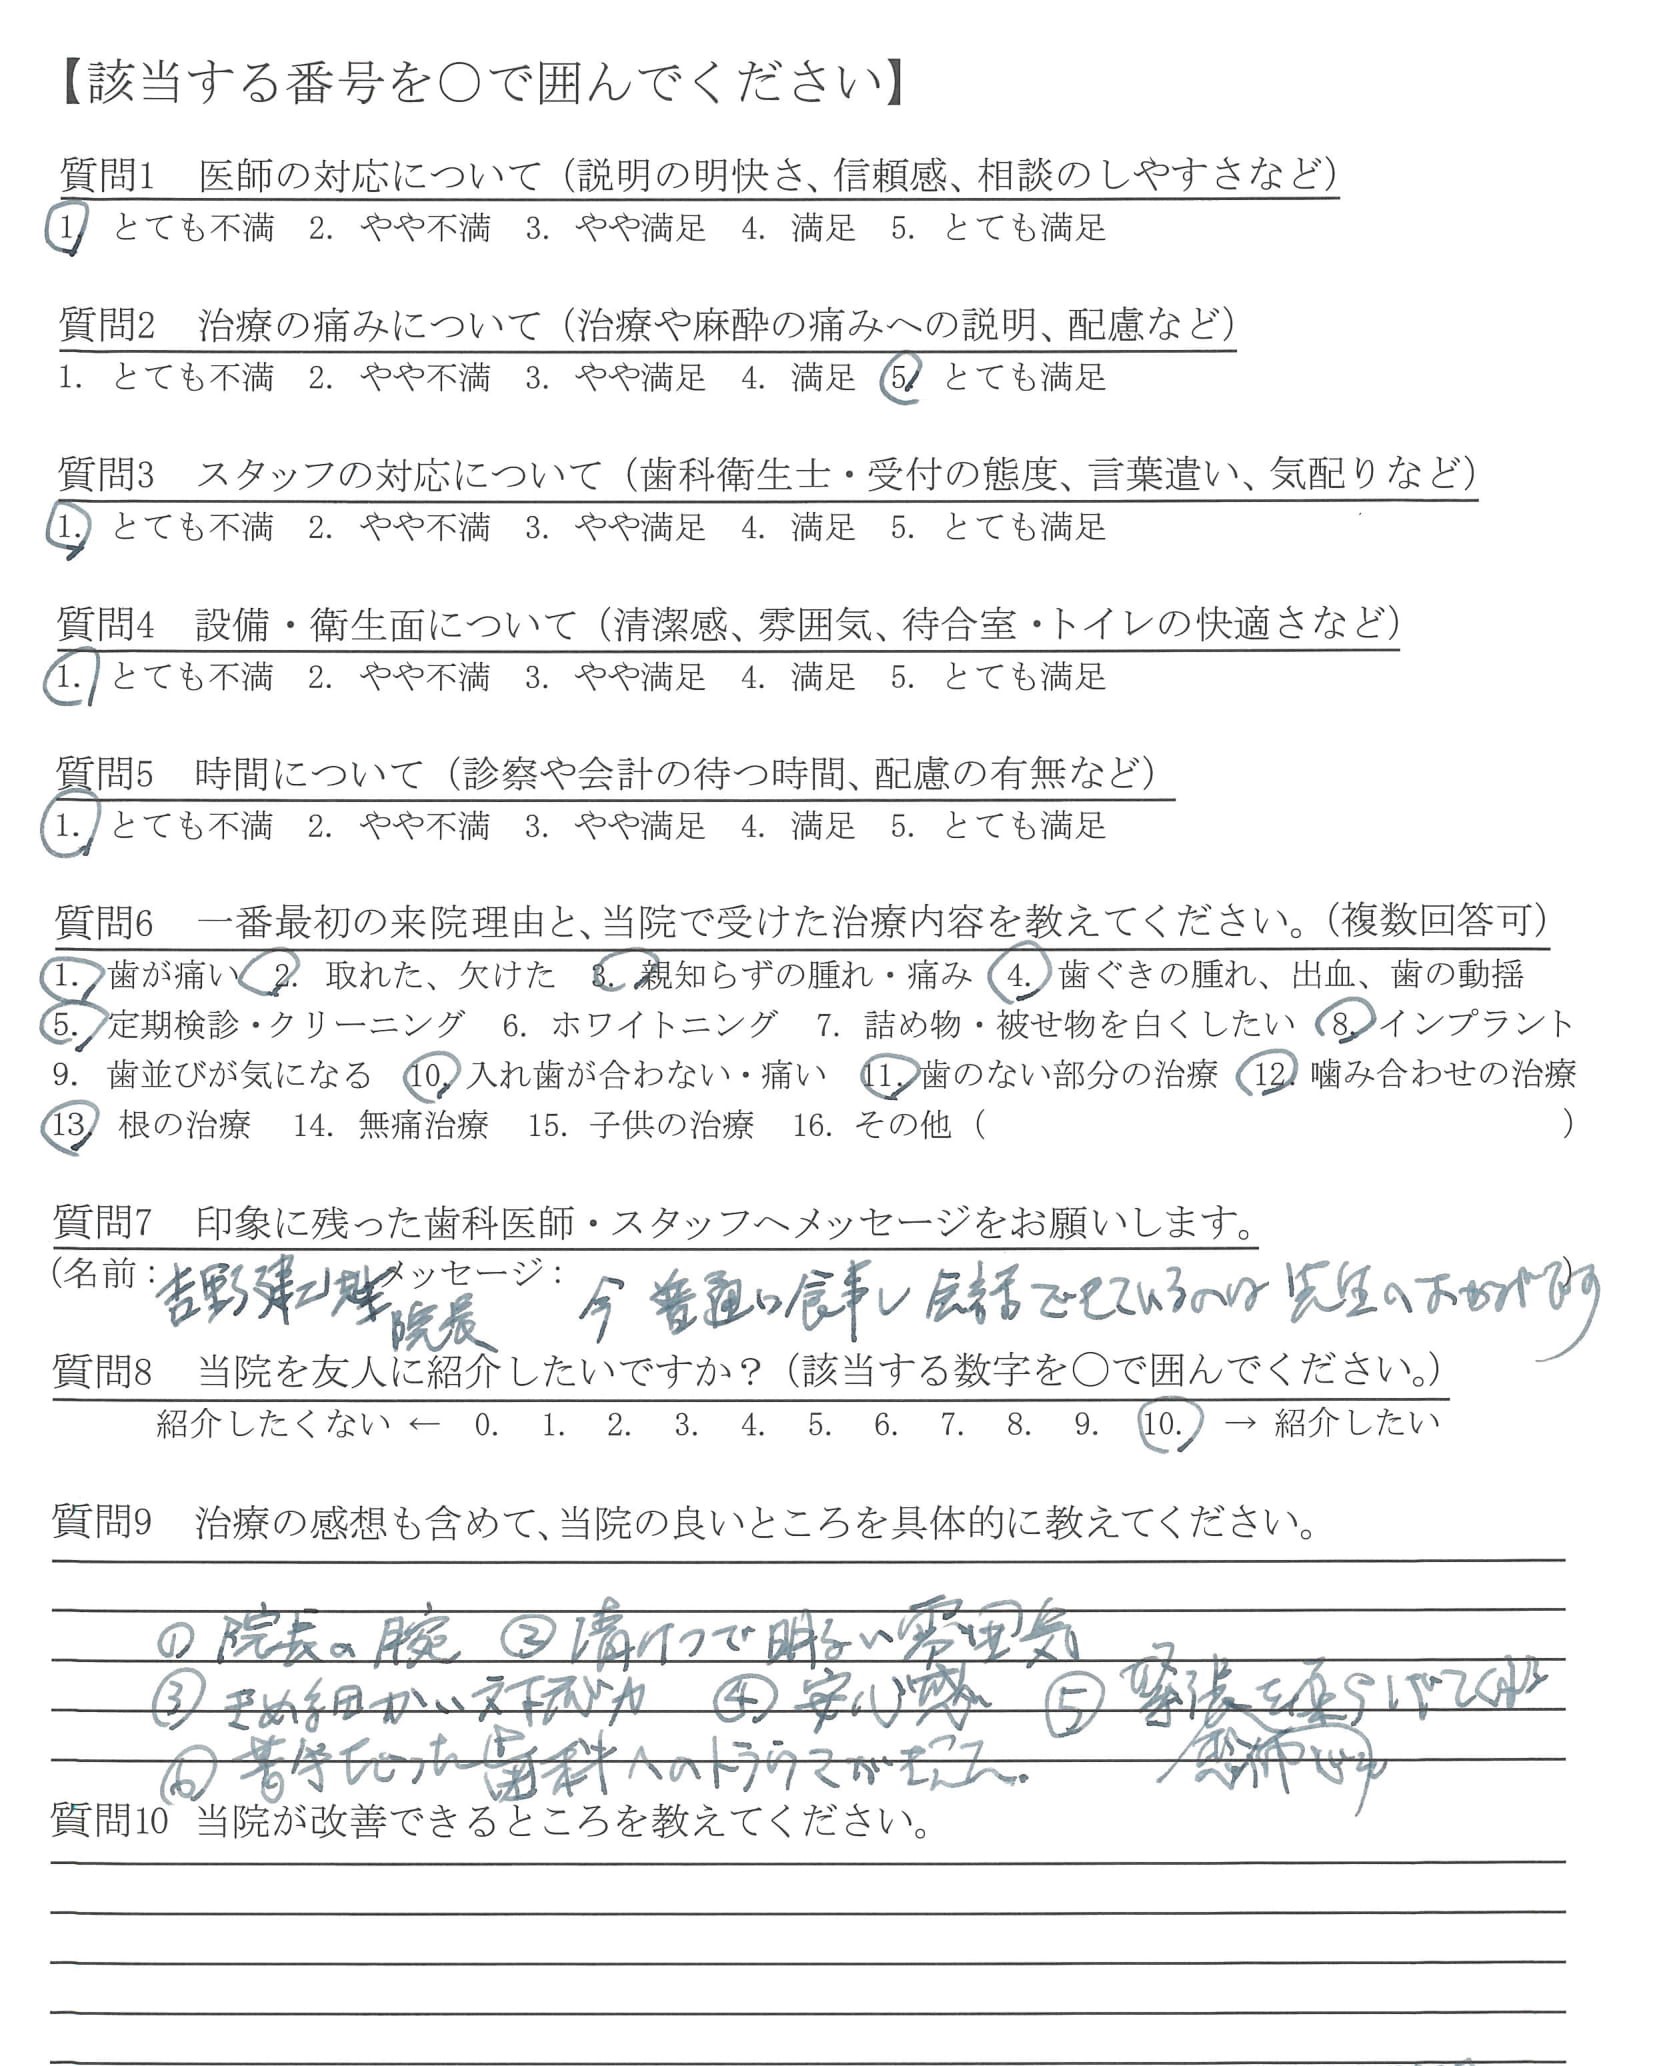 【該当する番号を○で囲んでください】
質問1　医師の対応について（説明の明快さ、信頼感、相談のしやすさなど）
1. とても不満　2. やや不満　3. やや満足　4. 満足　5. とても満足
質問2　治療の痛みについて（治療や麻酔の痛みへの説明、配慮など）
1. とても不満　2. やや不満　3. やや満足　4. 満足　5. とても満足
質問3　スタッフの対応について（歯科衛生士・受付の態度、言葉遣い、気配りなど）
1. とても不満　2. やや不満　3. やや満足　4. 満足　5. とても満足
質問4　設備・衛生面について（清潔感、雰囲気、待合室・トイレの快適さなど）
1. とても不満　2. やや不満　3. やや満足　4. 満足　5. とても満足
質問5　時間について（診察や会計の待つ時間、配慮の有無など）
1. とても不満　2. やや不満　3. やや満足　4. 満足　5. とても満足
質問6　一番最初の来院理由と、当院で受けた治療内容を教えてください。（複数回答可）
1. 歯が痛い　2. 取れた、欠けた　3. 親知らずの腫れ・痛み　4. 歯ぐきの腫れ、出血、歯の動揺
5. 定期検診・クリーニング　6. ホワイトニング　7. 詰め物・被せ物を白くしたい　8. インプラント
9. 歯並びが気になる　10. 入れ歯が合わない・痛い　11. 歯のない部分の治療　12. 噛み合わせの治療
13. 根の治療　14. 無痛治療　15. 子供の治療　16. その他（　　　）
質問7　印象に残った歯科医師・スタッフへメッセージをお願いします。
（名前：吉野 院長　メッセージ：今 普通に食事し 会話できているのは 先生のおかげです）
質問8　当院を友人に紹介したいですか？（該当する数字を○で囲んでください。）
紹介したくない ← 0. 1. 2. 3. 4. 5. 6. 7. 8. 9. 10. → 紹介したい
質問9　治療の感想も含めて、当院の良いところを具体的に教えてください。
① 院長の腕　② 清けつで明るい雰囲気
③ きめ細かい対応力　④ 安心感　⑤ 緊張を
⑥ 歯科へのトラウマが　恐怖心
質問10　当院が改善できるところを教えてください。